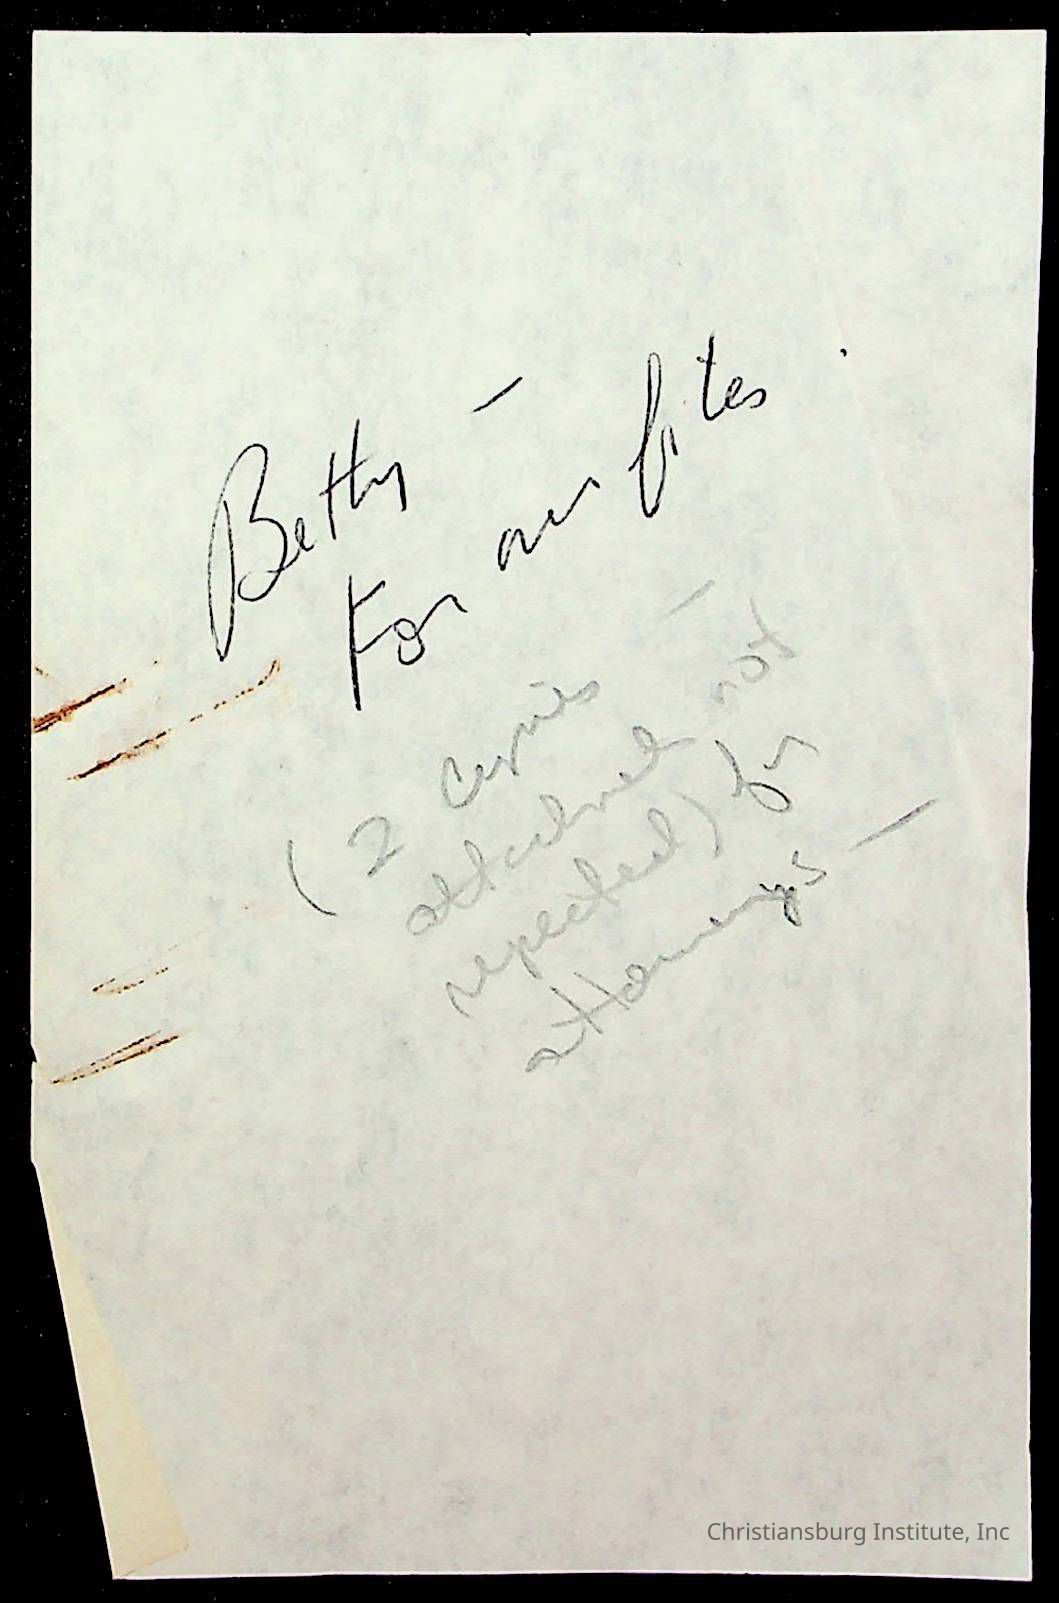 Betty —
For our files
(2 copies —
attached not
repected) for
attorneys —
Christiansburg Institute, Inc